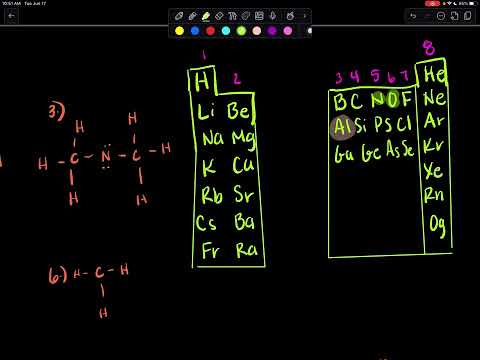 10:51 AM Tue Jun 17
1
8
H
2
3 4 5 6 7
He
3.)
Li Be
B C N O F
Ne
H H
Na Mg
Al Si P S Cl
Ar
H - C - N - C - H
K Ca
Ga Ge As Se
Kr
H H
Rb Sr
Xe
Cs Ba
Rn
Fr Ra
Og
6.) H - C - H
H